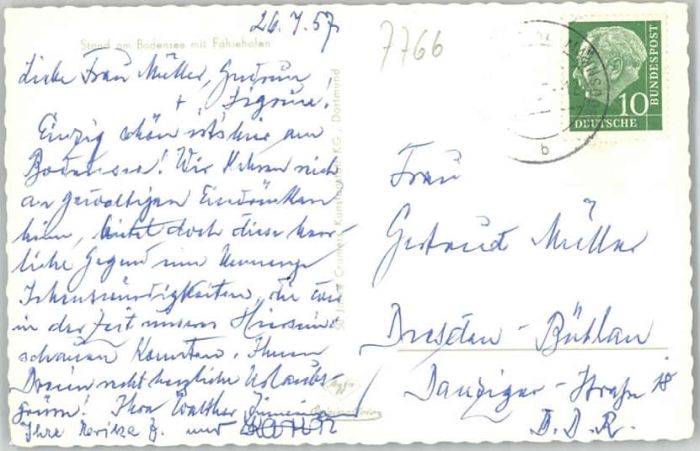 26.7.57
7766
Staad am Bodensee mit Fährehafen
Liebe Frau Müller, Gudrun
+ Sigrune!
Einzig schön ist's hier am
Bodensee! Wir kehren reich
an gewaltigen Eindrücken
heim, bietet doch diese herr-
liche Gegend eine Unmenge
Sehenswürdigkeiten, die wir
in der Zeit unseres Hierseins
schauen konnten. Ihnen
Dreien recht herzliche Urlaubs-
grüße! Ihr Walther
Ihre und
10
DEUTSCHE
BUNDESPOST
b
Frau
Gertrud Müller
Dresden-Bühlau
Danziger-Straße 18
D.D.R.
Kunstanstalt KG., Dortmund
Agfa